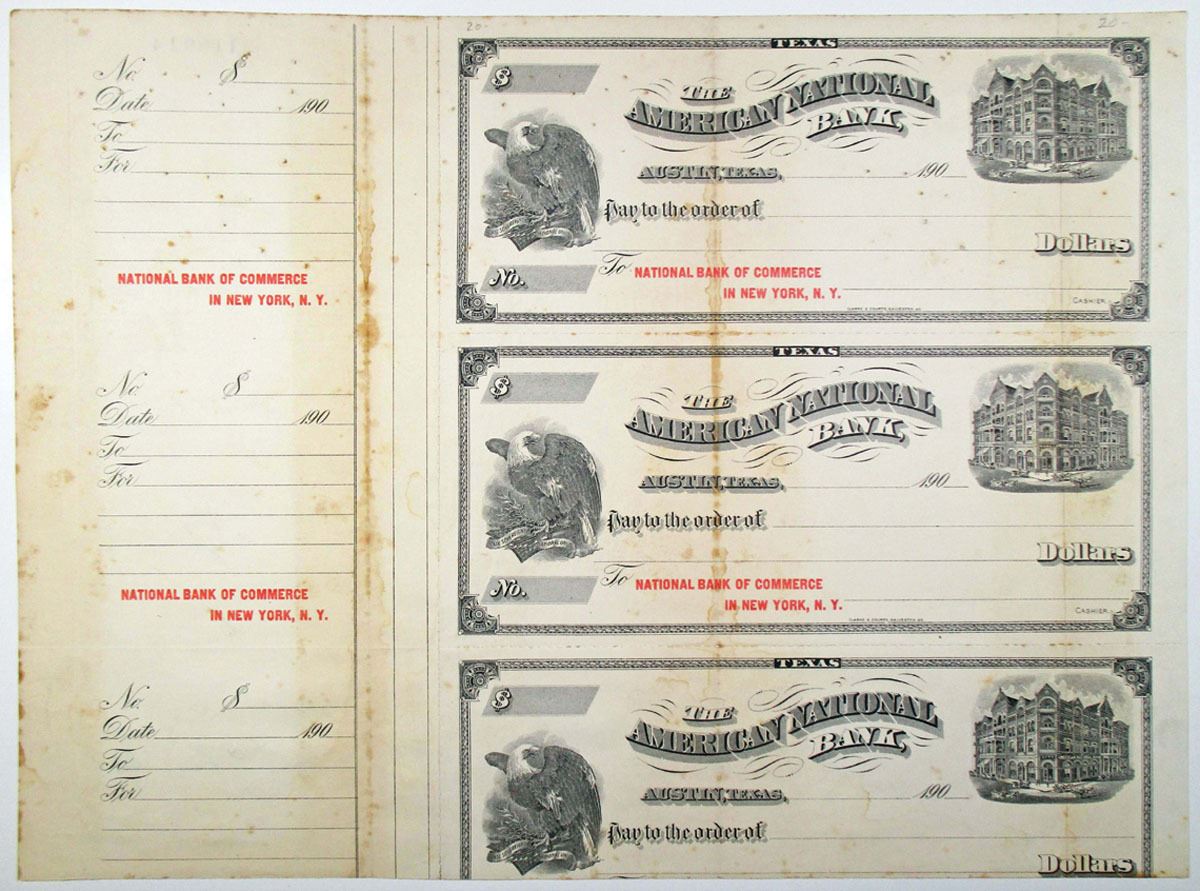 20- 20-
No. $
Date 190
To
For
NATIONAL BANK OF COMMERCE
IN NEW YORK, N. Y.
TEXAS
$
THE
AMERICAN NATIONAL
BANK,
AUSTIN, TEXAS, 190
Pay to the order of
Dollars
No. To NATIONAL BANK OF COMMERCE
IN NEW YORK, N. Y.
CASHIER.
No. $
Date 190
To
For
NATIONAL BANK OF COMMERCE
IN NEW YORK, N. Y.
TEXAS
$
THE
AMERICAN NATIONAL
BANK,
AUSTIN, TEXAS, 190
Pay to the order of
Dollars
No. To NATIONAL BANK OF COMMERCE
IN NEW YORK, N. Y.
CASHIER.
No. $
Date 190
To
For
TEXAS
$
THE
AMERICAN NATIONAL
BANK,
AUSTIN, TEXAS, 190
Pay to the order of
Dollars